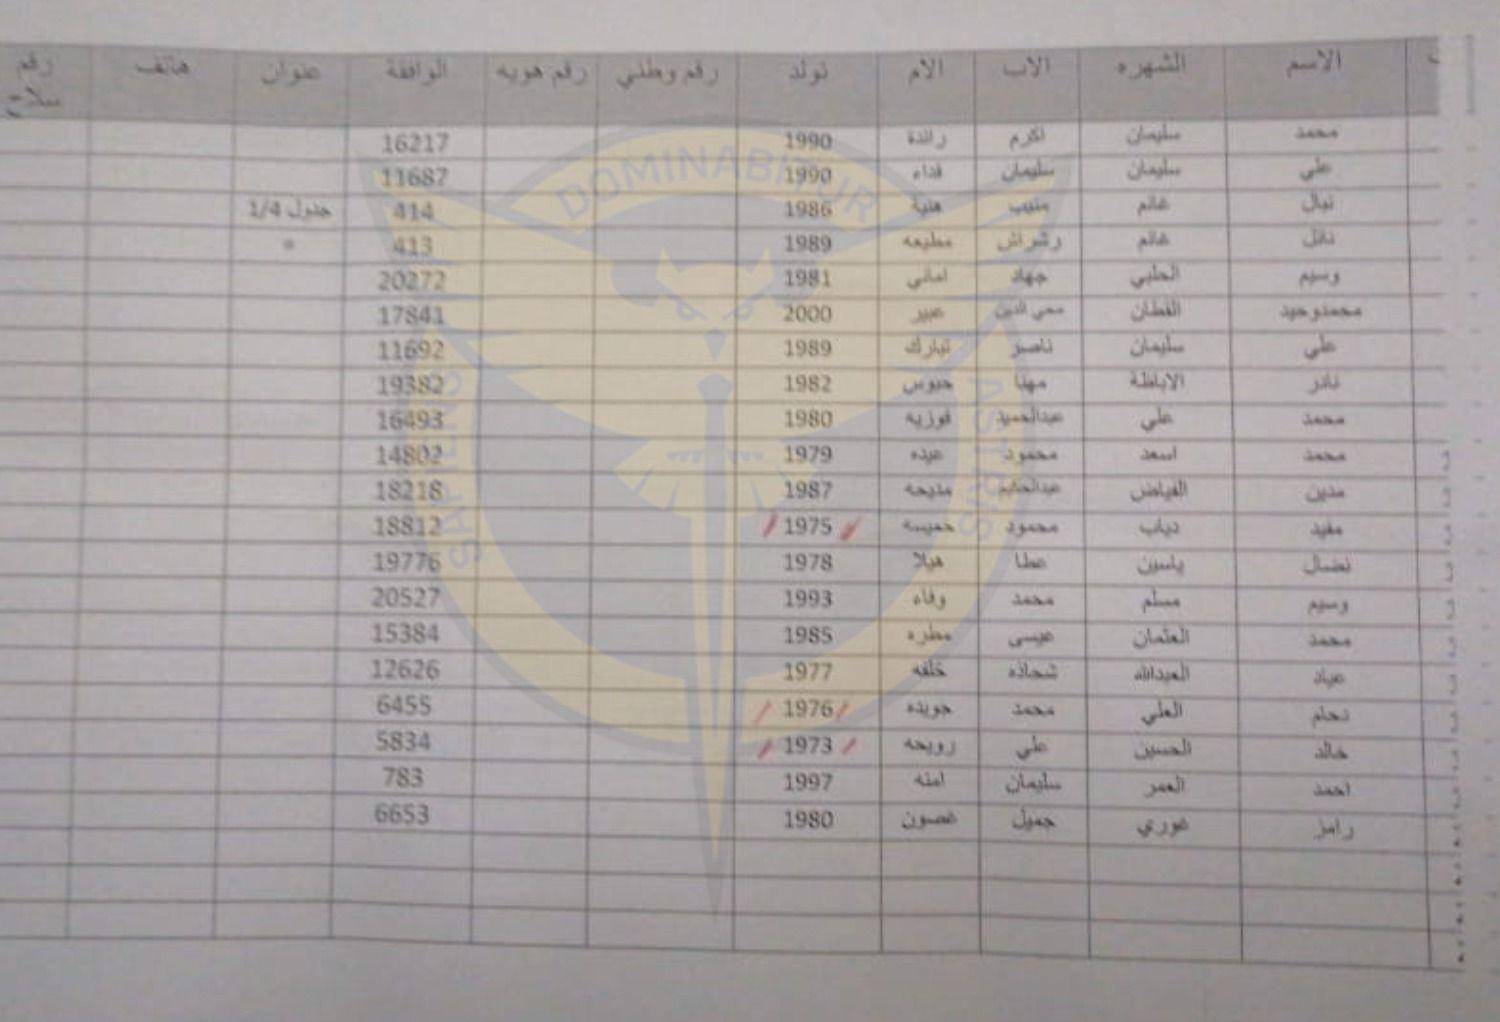 الاسم الشهره الاب الام تولد رقم وطني رقم هويه الوافقة عنوان هاتف رقم سلاح
محمد سليمان اكرم رائدة 1990 16217
علي سليمان سليمان فداء 1990 11687
نبال غانم منيب هنية 1986 414 جدول 1/4
نائل غانم رشراش مطيعه 1989 413
وسيم الحلبي جهاد اماني 1981 20272
محمدوحيد القطان محي الدين عبير 2000 17841
علي سليمان ناصر تبارك 1989 11692
نادر الاباظة مهنا حبوس 1982 19382
محمد علي عبدالحميد فوزيه 1980 16493
محمد اسعد محمود عيده 1979 14802
مدين الفياض مديحه 1987 18218
مفيد دياب محمود خميسه 1975 18812
نضال ياسين عطا هيلا 1978 19776
وسيم مسلم محمد وفاء 1993 20527
محمد العثمان عيسى مطره 1985 15384
عياد العبدالله شحاذه خلفه 1977 12626
العلي محمد جويده 1976 6455
خالد الحسين علي رويحه 1973 5834
احمد العمر سليمان امنه 1997 783
رامز غوري جميل غصون 1980 6653
DOMINABITUR
SAPIENS
ASTRIS